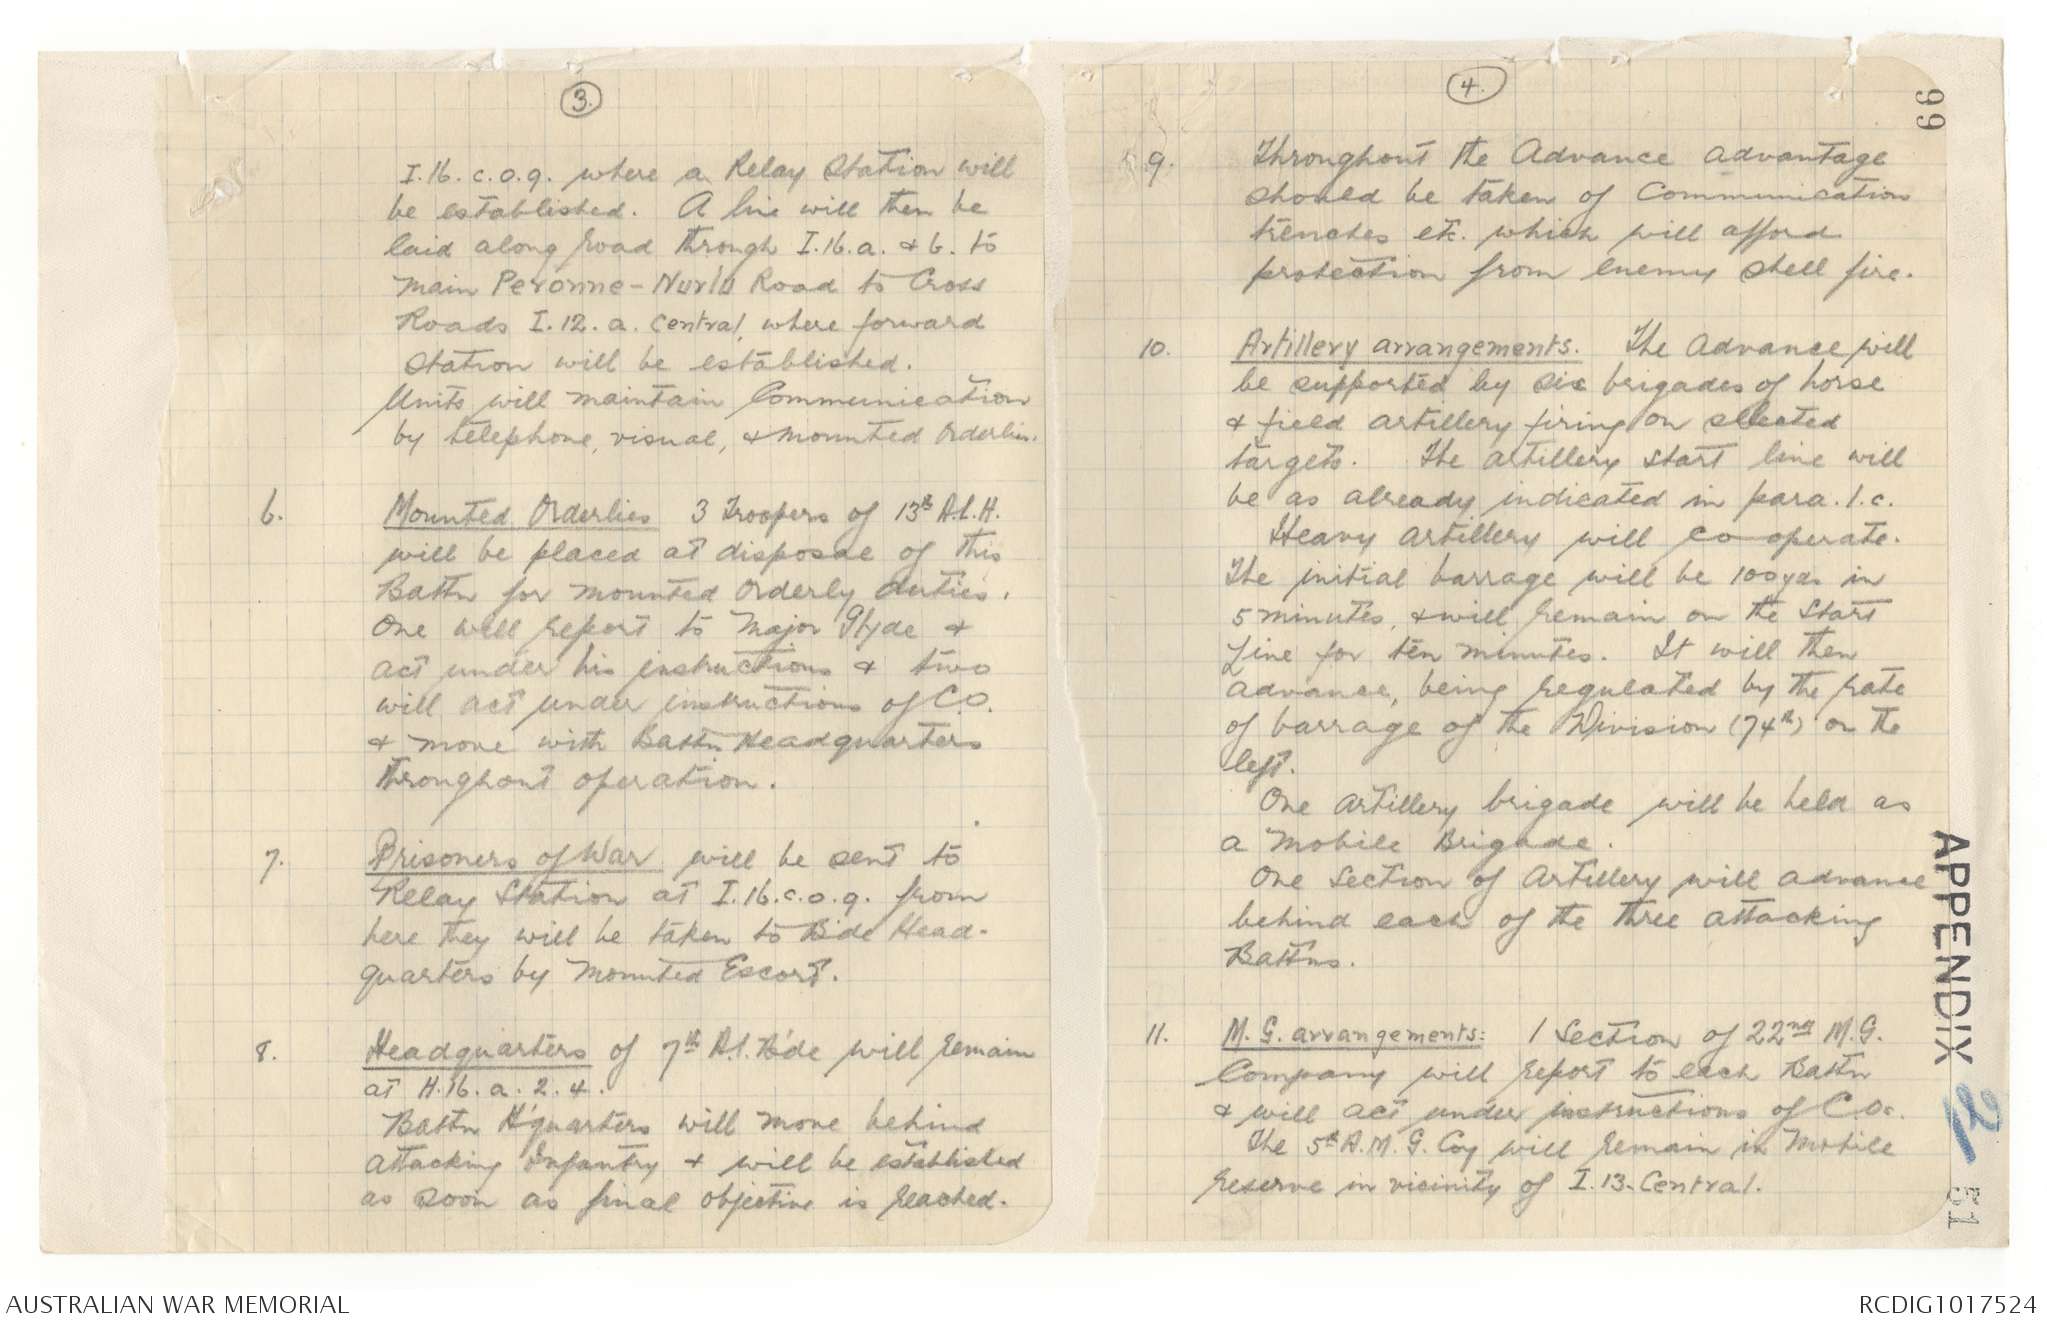 3.
I.16.c.0.9. where a Relay Station will
be established. A line will then be
laid along road through I.16.a. & b. to
main Peronne-Nurlu Road to Cross
Roads I.12.a. Central, where forward
station will be established.
Units will maintain Communication
by telephone, visual, & mounted Orderlies.
6. Mounted Orderlies 3 Troopers of 13th A.L.H.
will be placed at disposal of this
Battn for mounted Orderly duties.
One will report to Major Glyde &
act under his instructions & two
will act under instructions of C.O.
& move with Battn Headquarters
throughout operation.
7. Prisoners of War will be sent to
Relay Station at I.16.c.0.9. from
here they will be taken to B'de Head-
quarters by Mounted Escort.
8. Headquarters of 7th A.I. B'de will remain
at H.16.a.2.4.
Battn H'quarters will move behind
attacking Infantry & will be established
as soon as final objective is reached.
4.
99
9. Throughout the Advance advantage
should be taken of Communication
trenches etc. which will afford
protection from enemy shell fire.
10. Artillery arrangements. The Advance will
be supported by six brigades of horse
& field artillery firing on selected
targets. The artillery start line will
be as already indicated in para. 1.c.
Heavy artillery will co-operate.
The initial barrage will be 100 yds in
5 minutes, & will remain on the Start
Line for ten minutes. It will then
advance, being regulated by the rate
of barrage of the Division (74th) on the
left.
One artillery brigade will be held as
a Mobile Brigade.
One section of Artillery will advance
behind each of the three attacking
Battns.
11. M.G. arrangements: 1 Section of 22nd M.G.
Company will report to each Battn
& will act under instructions of C.Os.
The 5th A.M.G. Coy will remain in Mobile
reserve in vicinity of I.13. Central.
APPENDIX 2
51
AUSTRALIAN WAR MEMORIAL
RCDIG1017524